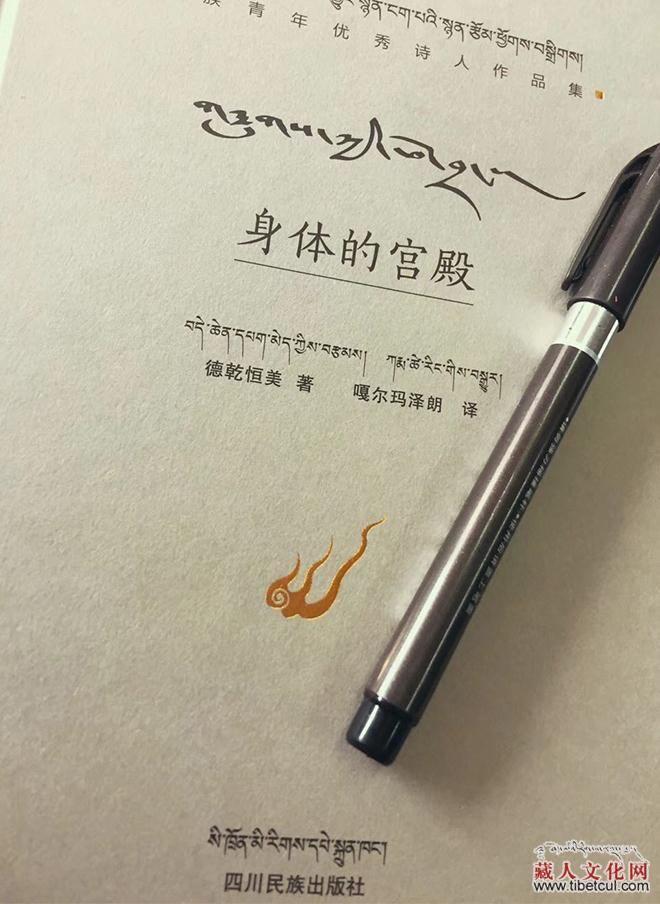 སྙན་ངག་པའི་སྙན་རྩོམ་ཕྱོགས་བསྒྲིགས།
族青年优秀诗人作品集
身体的宫殿
བདེ་ཆེན་དཔག་མེད་ཀྱིས་བརྩམས། ཀརྨ་ཚེ་རིང་གིས་བསྒྱུར།
德乾恒美 著 嘎尔玛泽朗 译
སི་ཁྲོན་མི་རིགས་དཔེ་སྐྲུན་ཁང་།
四川民族出版社
藏人文化网
www.tibetcul.com